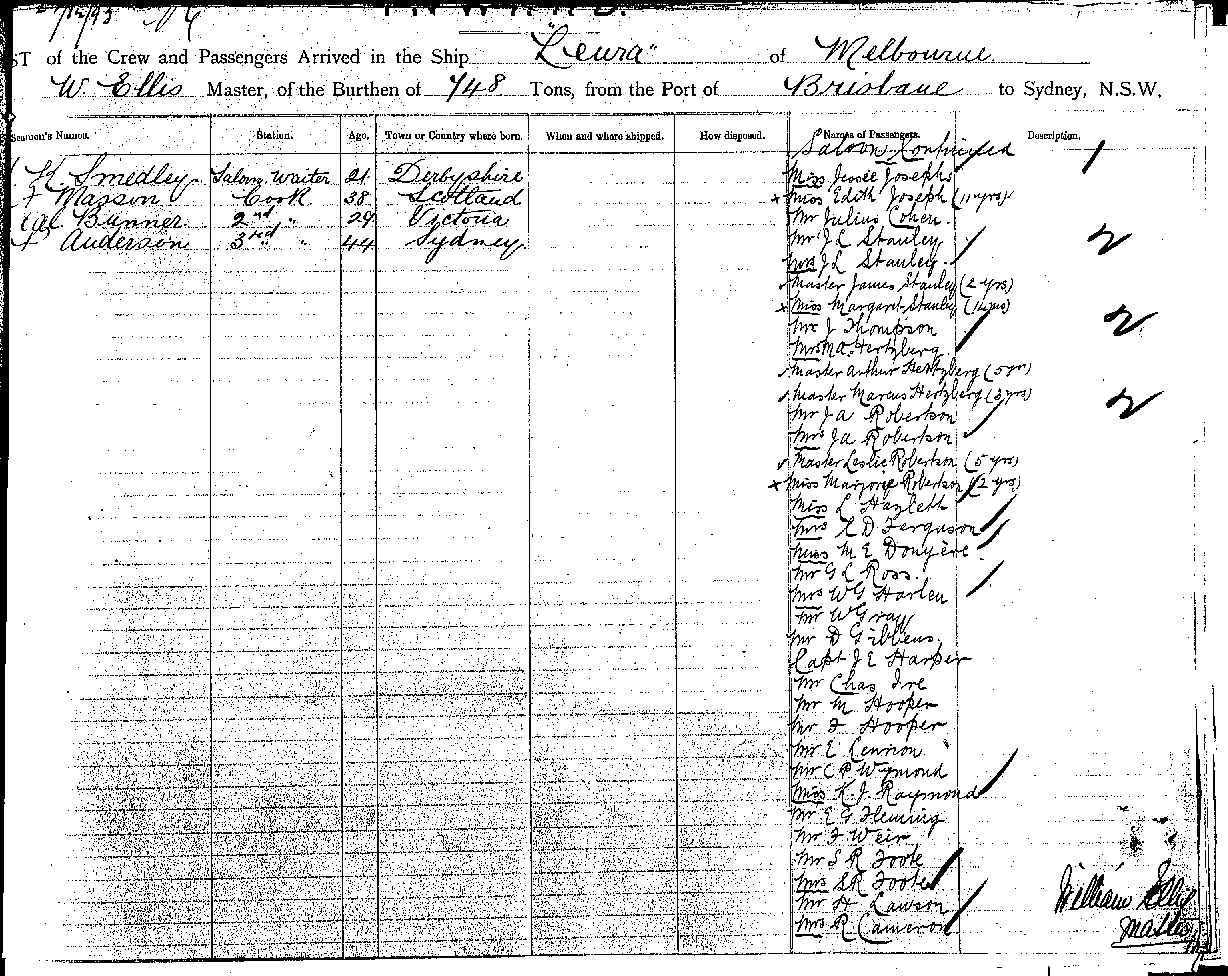 7/12/93
INWARD.
ST of the Crew and Passengers Arrived in the Ship "Leura" of Melbourne
W. Ellis Master, of the Burthen of 748 Tons, from the Port of Brisbane to Sydney, N.S.W.
Seamen's Names. Station. Age. Town or Country where born. When and where shipped. How disposed. Names of Passengers. Description.
Saloon Continued
Smedley Saloon Waiter 21 Derbyshire
Masson Cook 38 Scotland
Bunner 2nd " 29 Victoria
Anderson 3rd " 44 Sydney
Miss Jessie Josephs 1
x Miss Edith Joseph (11 yrs)
Mr Julius Cohen.
Mr J L Stanley 2
Mrs J L Stanley
Master James Stanley (2 yrs)
x Miss Margaret Stanley
Mr J Thompson 2
Mrs M A Hertzberg
Master Arthur Hertzberg (5 yrs)
Master Marcus Hertzberg (3 yrs) 2
Mr J A Robertson
Mrs J A Robertson
Master Leslie Robertson (5 yrs)
x Miss Marjorie Robertson (2 yrs)
Miss L Hazleth
Mrs D Ferguson
Miss M E
Mr G L Ross.
Mrs W G Harlen
Mr W Gray
Mr D Gibbens.
Capt J E Harper
Mr Chas Ive
Mr M Hooper
Mr F Hooper
Mr E Lennon
Mr C P Wymond
Miss K. J. Raymond
Mr E G Fleming
Mr F Weir
Mr S R Foote
Mrs S R Foote
Mr H Lawson
Mrs R Cameron
William Ellis
Master